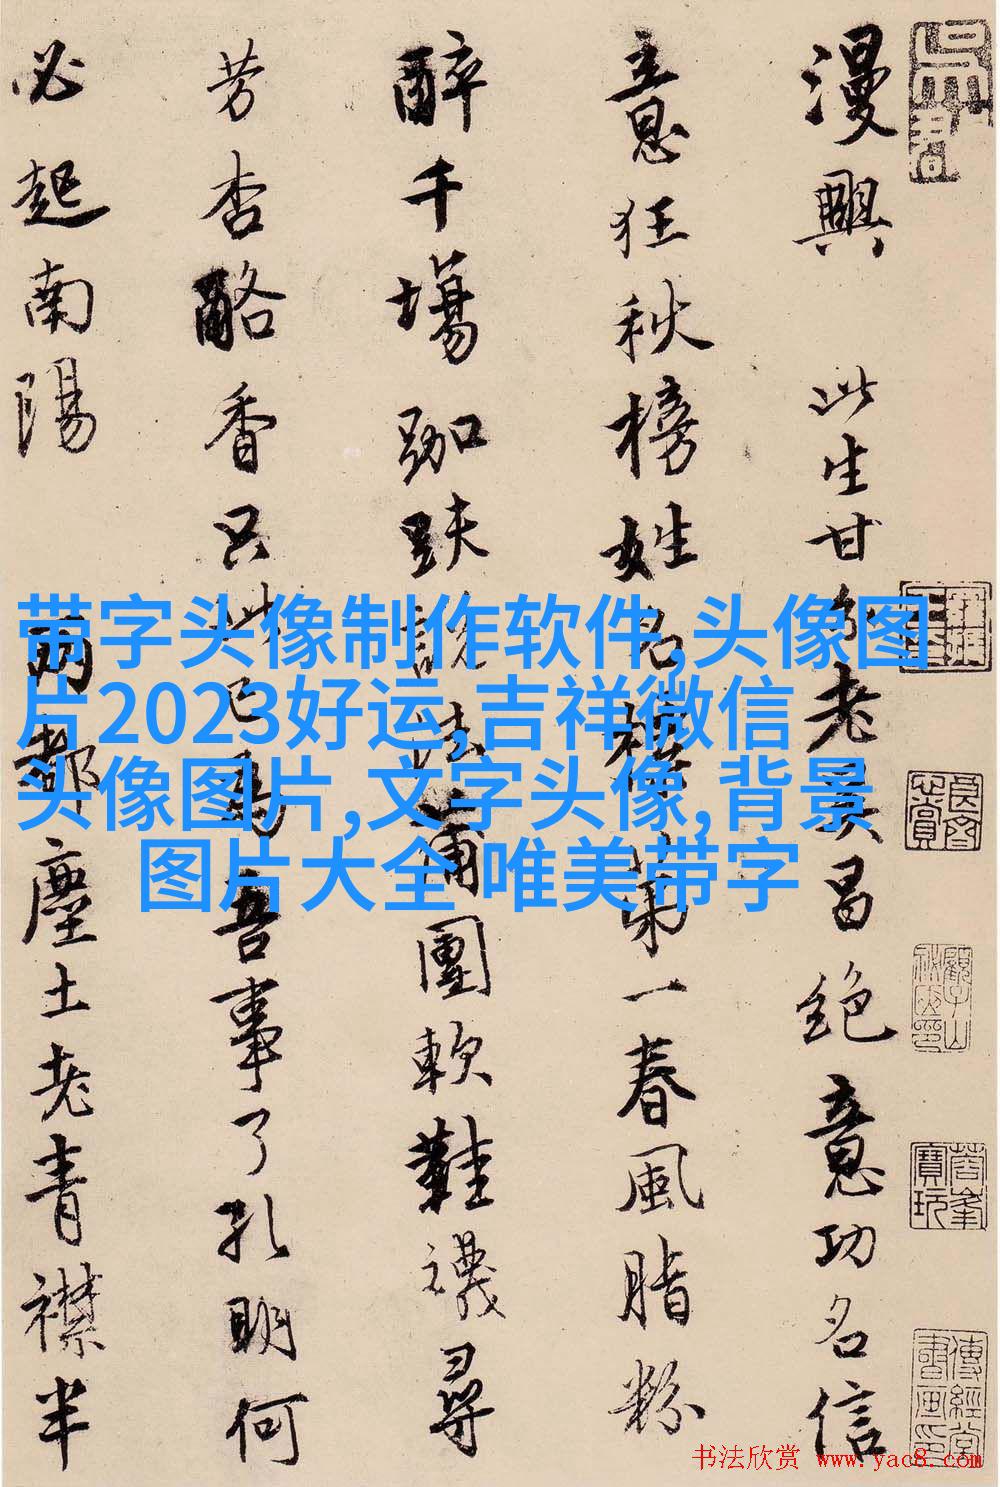 漫興 此生甘分老吳昌絕意功名信
意狂秋榜姓名標第一春風脂粉
醉千場跏趺說法蒲團軟鞋襪尋
芳杏酪香只此已為吾事了孔明何
必起南陽 兩都塵土老青襟半
带字头像制作软件,头像图
片2023好运,吉祥微信
头像图片,文字头像,背景
图片大全 唯美带字
蓉峯寶玩
书法欣赏 www.yac8.com